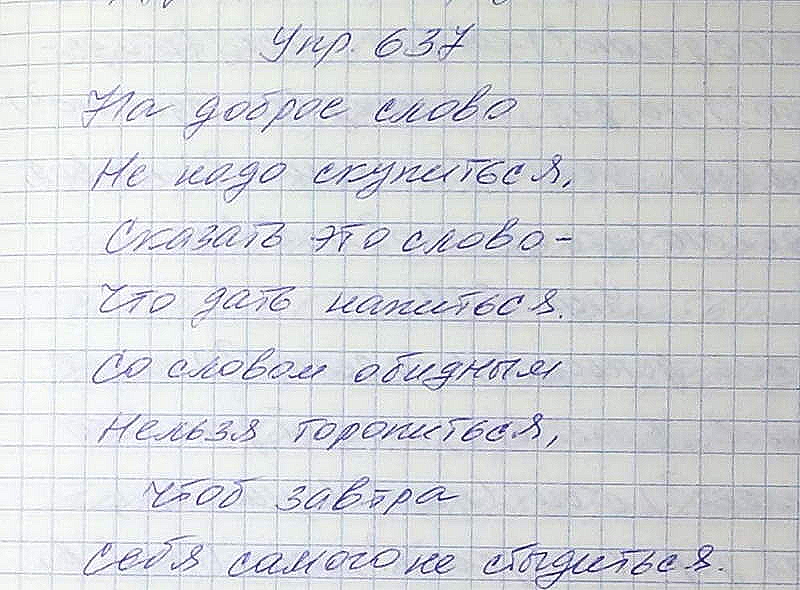 Упр. 637
На доброе слово
Не надо скупиться,
Сказать это слово –
Что дать напиться.
Со словом обидным
Нельзя торопиться,
Чтоб завтра
Себя самого не стыдиться.